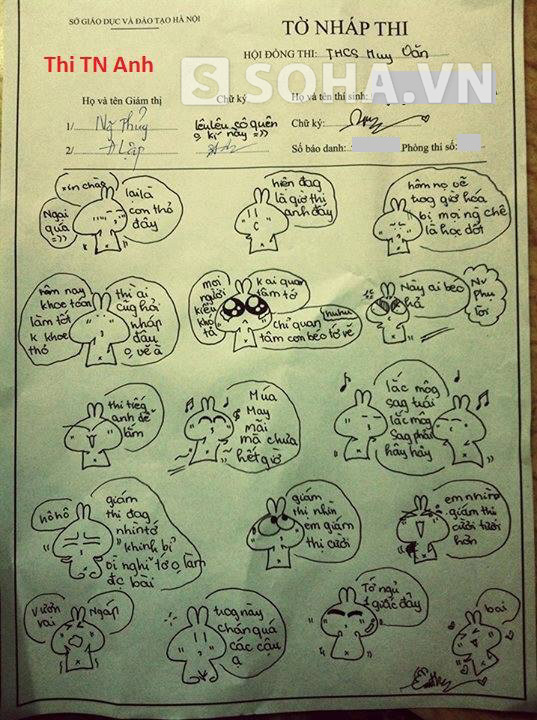 SỞ GIÁO DỤC VÀ ĐÀO TẠO HÀ NỘI
TỜ NHÁP THI
HỘI ĐỒNG THI: THCS Huy Văn
Thi TN Anh
SOHA.VN
Họ và tên Giám thị
Chữ ký
Họ và tên thí sinh:
1/
Thủy
lêu lêu có quên
kí này =))
Chữ ký:
2/
Lập
Số báo danh:
Phòng thi số:
xin chào
Ngại
quá
=))
lại là
con thỏ
đây
hiện đag
là giờ thi
anh đây
hôm nọ vẽ
trog giờ hóa
bị mọi ng chê
là học dốt
hôm nay
khoe toán
làm tốt
k khoe
thỏ
thì ai
cug fải
nháp
đâu
vẽ ạ
mọi
người
kiêu
kho
tả
k ai quan
tâm tớ
huhu
chỉ quan
tâm con béo tớ vẽ
Này ai béo
hả
Nv
phụ
tôi
thi tiếg
anh dễ
lắm
Múa
May
mãi
mà chưa
hết giờ
lắc môg
sag trái
lắc môg
sag phải
hây hây
hô hô
giám
thị đag
nhìn tớ
khinh bỉ
vì nghĩ tớ o làm
đc bài
giám
thị nhìn
em giám
thị cười
em nhìn
giám thị
cười tươi
hơn
Vươn
vai
Ngáp
trog này
chán quá
các cậu
ạ
Tớ ngủ
1 giấc đây
bai